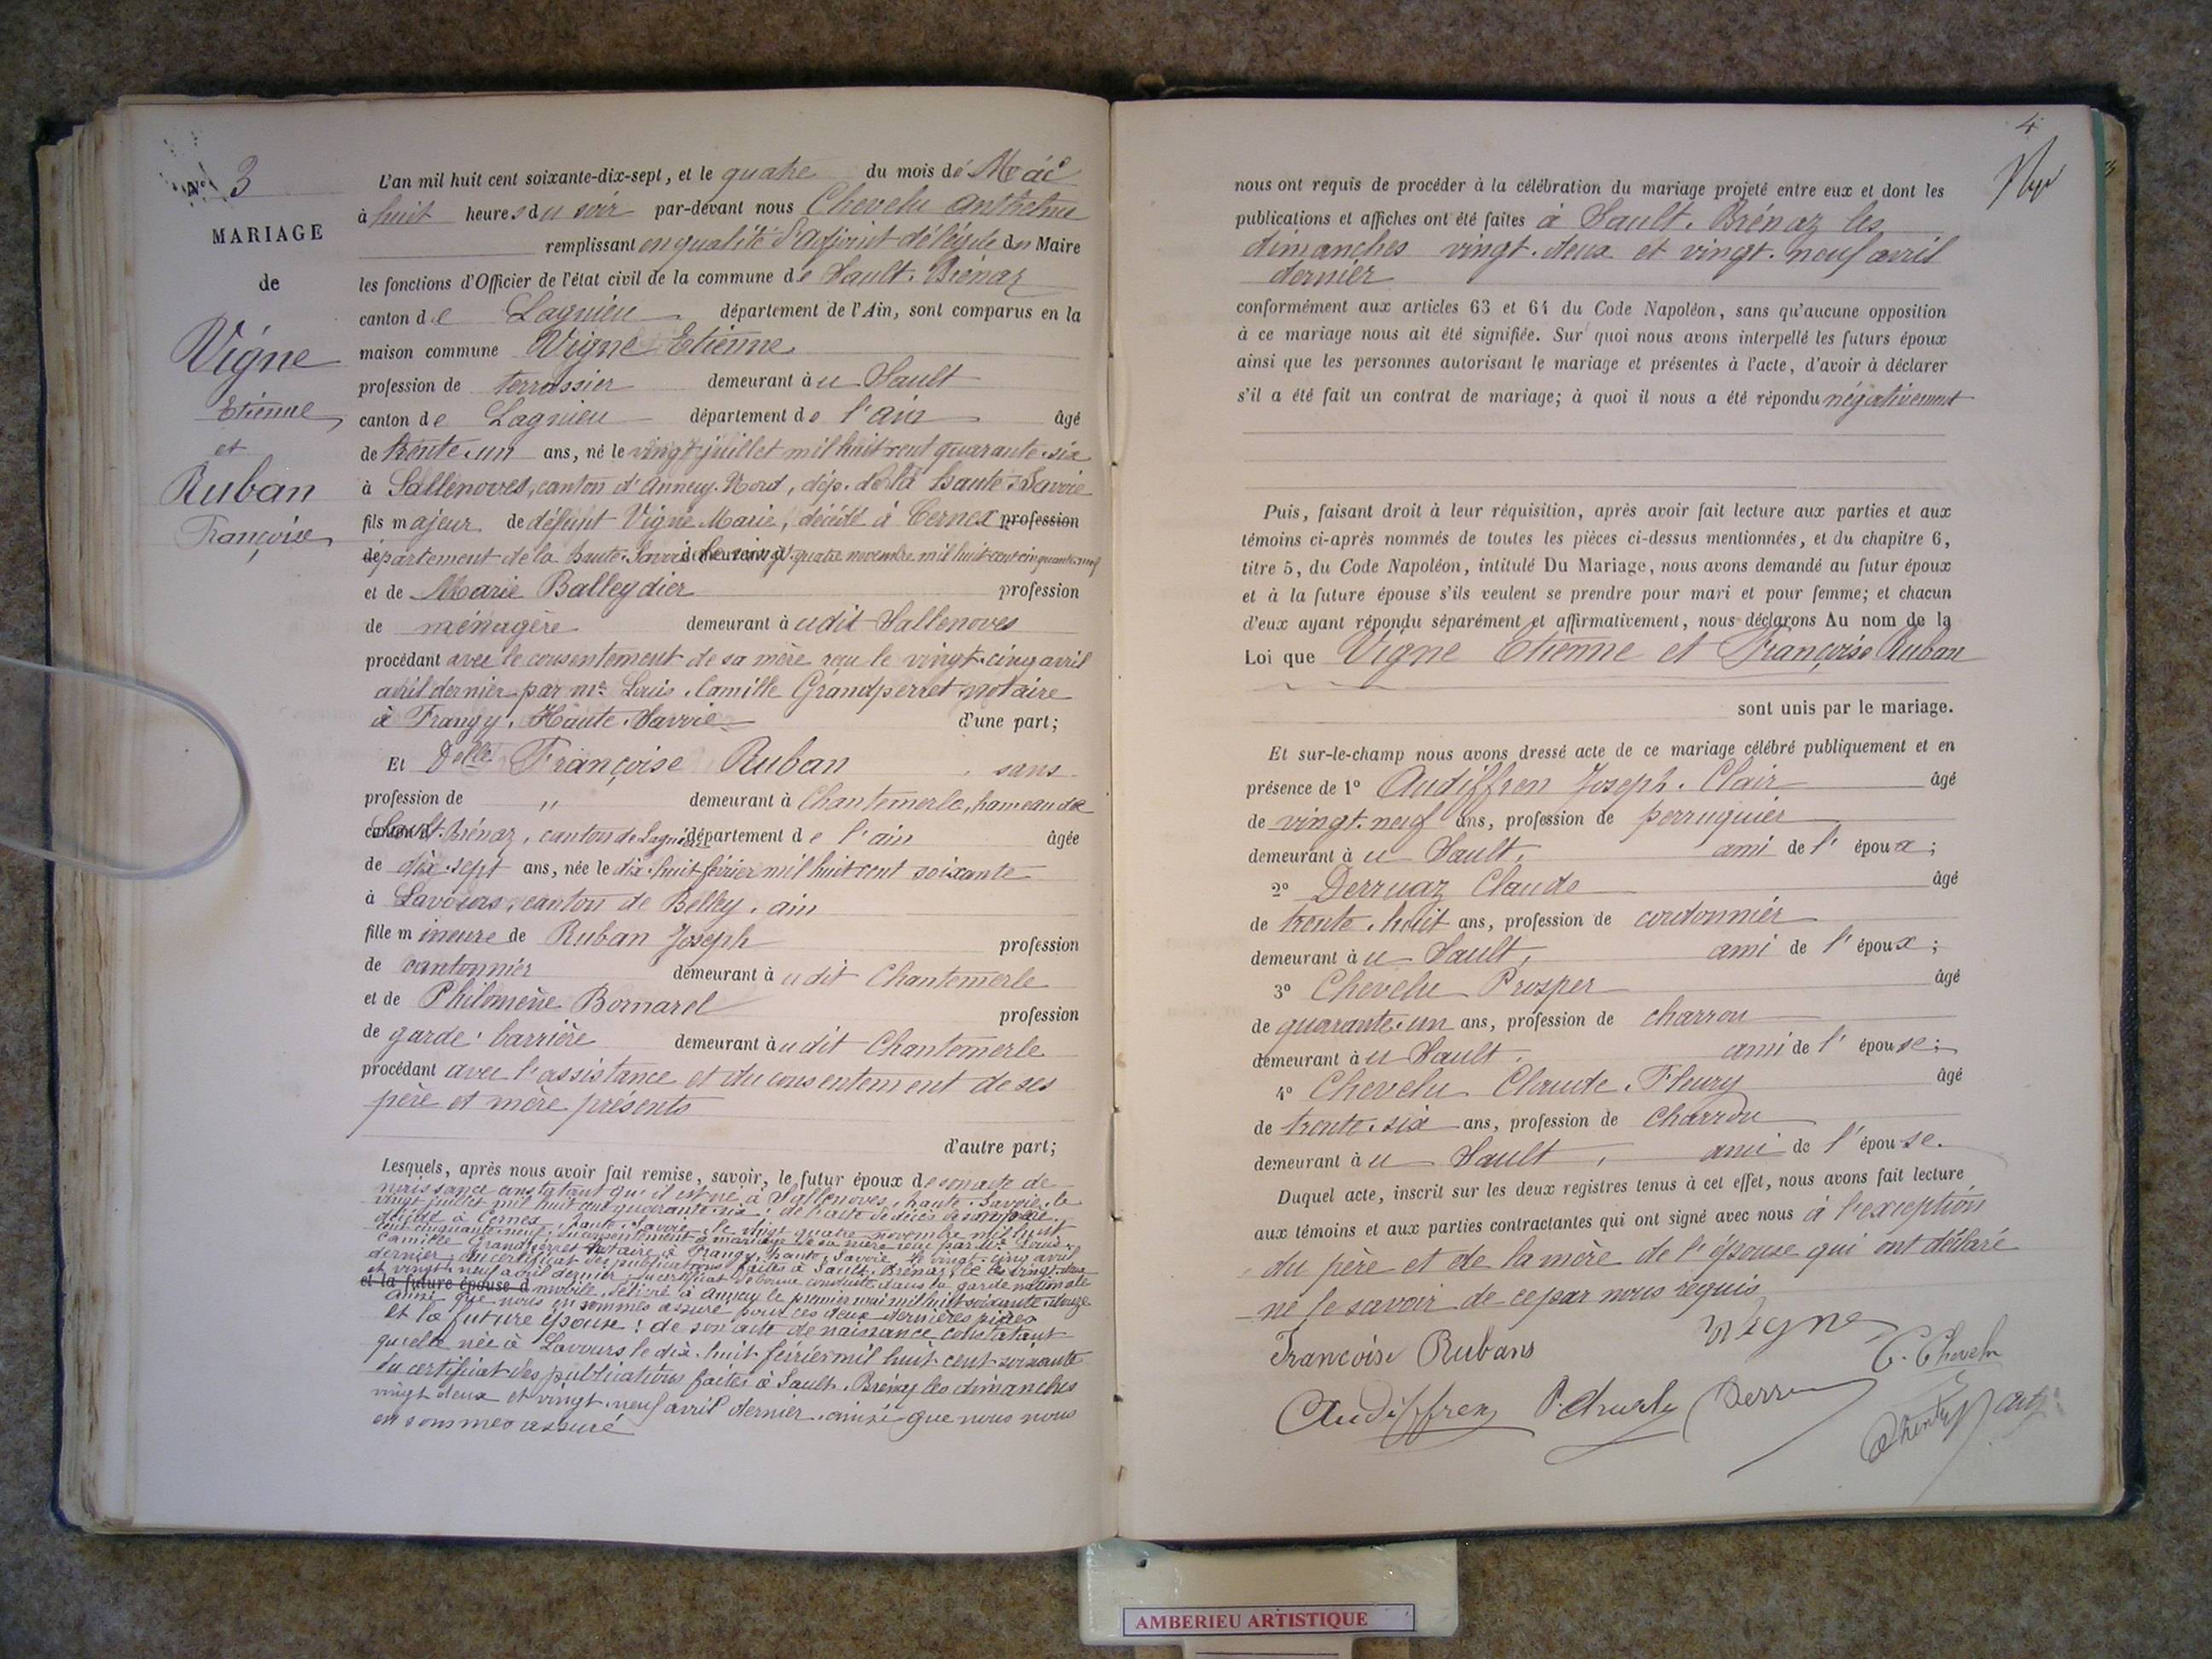 N° 3
MARIAGE
de
Vigne
Etienne
et
Ruban
Françoise
L'an mil huit cent soixante-dix-sept, et le quatre du mois de Mai
à huit heures du soir par-devant nous Chevelu Anthelme
remplissant en qualité d'Adjoint délégué du Maire
les fonctions d'Officier de l'état civil de la commune de Sault-Brénaz
canton de Lagnieu département de l'Ain, sont comparus en la
maison commune Vigne Etienne
profession de terrassier demeurant à u Sault
canton de Lagnieu département de l'ain âgé
de trente-un ans, né le vingt juillet mil huit-cent quarante-six
à Sallenoves, canton d'Annecy-Nord, dép. de la haute-Savoie
fils majeur de défunt Vigne Marie, décédé à Cernex profession
département de la haute-Savoie le vingt-quatre novembre mil huit-cent-cinquante-neuf
et de Marie Balleydier profession
de ménagère demeurant à udit Sallenoves
procédant avec le consentement de sa mère reçu le vingt-cinq avril
avril dernier par me Louis-Camille Grandperret notaire
à Frangy, Haute-Savoie d'une part;
Et Delle Françoise Ruban sans
profession de " demeurant à Chantemerle, hameau de
Sault-Brénaz, canton de Lagnieu département de l'ain âgée
de dix-sept ans, née le dix-huit février mil huit cent soixante
à Lavours, canton de Belley, ain
fille mineure de Ruban Joseph profession
de cantonnier demeurant à udit Chantemerle
et de Philomène Bornarel profession
de garde-barrière demeurant à udit Chantemerle
procédant avec l'assistance et du consentement de ses
père et mère présents
d'autre part;
Lesquels, après nous avoir fait remise, savoir, le futur époux de son acte de
naissance constatant qu'il est né à Sallenoves, haute-Savoie, le
vingt juillet mil huit cent quarante-six; de l'acte de décès de son père,
décédé à Cernex, haute-Savoie, le vingt quatre novembre mil huit
cent cinquante-neuf, du consentement à mariage de sa mère reçu par Me Louis-
Camille Grandperret notaire à Frangy, haute-Savoie, le vingt-cinq avril
dernier, du certificat des publications faites à Sault-Brénaz, le vingt-deux
et vingt-neuf avril dernier, du certificat de bonne conduite dans la garde nationale
et la future épouse d mobile, délivré à Annecy le premier mai mil huit soixante-douze
ainsi que nous en sommes assuré pour ces deux dernières pièces
et la future épouse: de son acte de naissance constatant
qu'elle née à Lavours le dix-huit février mil huit-cent-soixante
du certificat des publications faites à Sault-Brénaz les dimanches
vingt deux et vingt-neuf avril dernier, ainsi que nous nous
en sommes assuré
4
nous ont requis de procéder à la célébration du mariage projeté entre eux et dont les
publications et affiches ont été faites à Sault-Brénaz les
dimanches vingt-deux et vingt-neuf avril
dernier
conformément aux articles 63 et 64 du Code Napoléon, sans qu'aucune opposition
à ce mariage nous ait été signifiée. Sur quoi nous avons interpellé les futurs époux
ainsi que les personnes autorisant le mariage et présentes à l'acte, d'avoir à déclarer
s'il a été fait un contrat de mariage; à quoi il nous a été répondu négativement
Puis, faisant droit à leur réquisition, après avoir fait lecture aux parties et aux
témoins ci-après nommés de toutes les pièces ci-dessus mentionnées, et du chapitre 6,
titre 5, du Code Napoléon, intitulé Du Mariage, nous avons demandé au futur époux
et à la future épouse s'ils veulent se prendre pour mari et pour femme; et chacun
d'eux ayant répondu séparément et affirmativement, nous déclarons Au nom de la
Loi que Vigne Etienne et Françoise Ruban
sont unis par le mariage.
Et sur-le-champ nous avons dressé acte de ce mariage célébré publiquement et en
présence de 1° Audiffren Joseph-Clair âgé
de vingt-neuf ans, profession de perruquier
demeurant à u Sault, ami de l'époux;
2° Derruaz Claude âgé
de trente-huit ans, profession de cordonnier
demeurant à u Sault, ami de l'époux;
3° Chevelu Prosper âgé
de quarante-un ans, profession de charron
demeurant à u Sault, ami de l'épouse;
4° Chevelu Claude-Fleury âgé
de trente-six ans, profession de charron
demeurant à u Sault, ami de l'épouse.
Duquel acte, inscrit sur les deux registres tenus à cet effet, nous avons fait lecture
aux témoins et aux parties contractantes qui ont signé avec nous à l'exception
du père et de la mère de l'épouse qui ont déclaré
ne le savoir de ce par nous requis
Francoise Rubans Vigne
C. Chevelu
Audiffren
AMBERIEU ARTISTIQUE